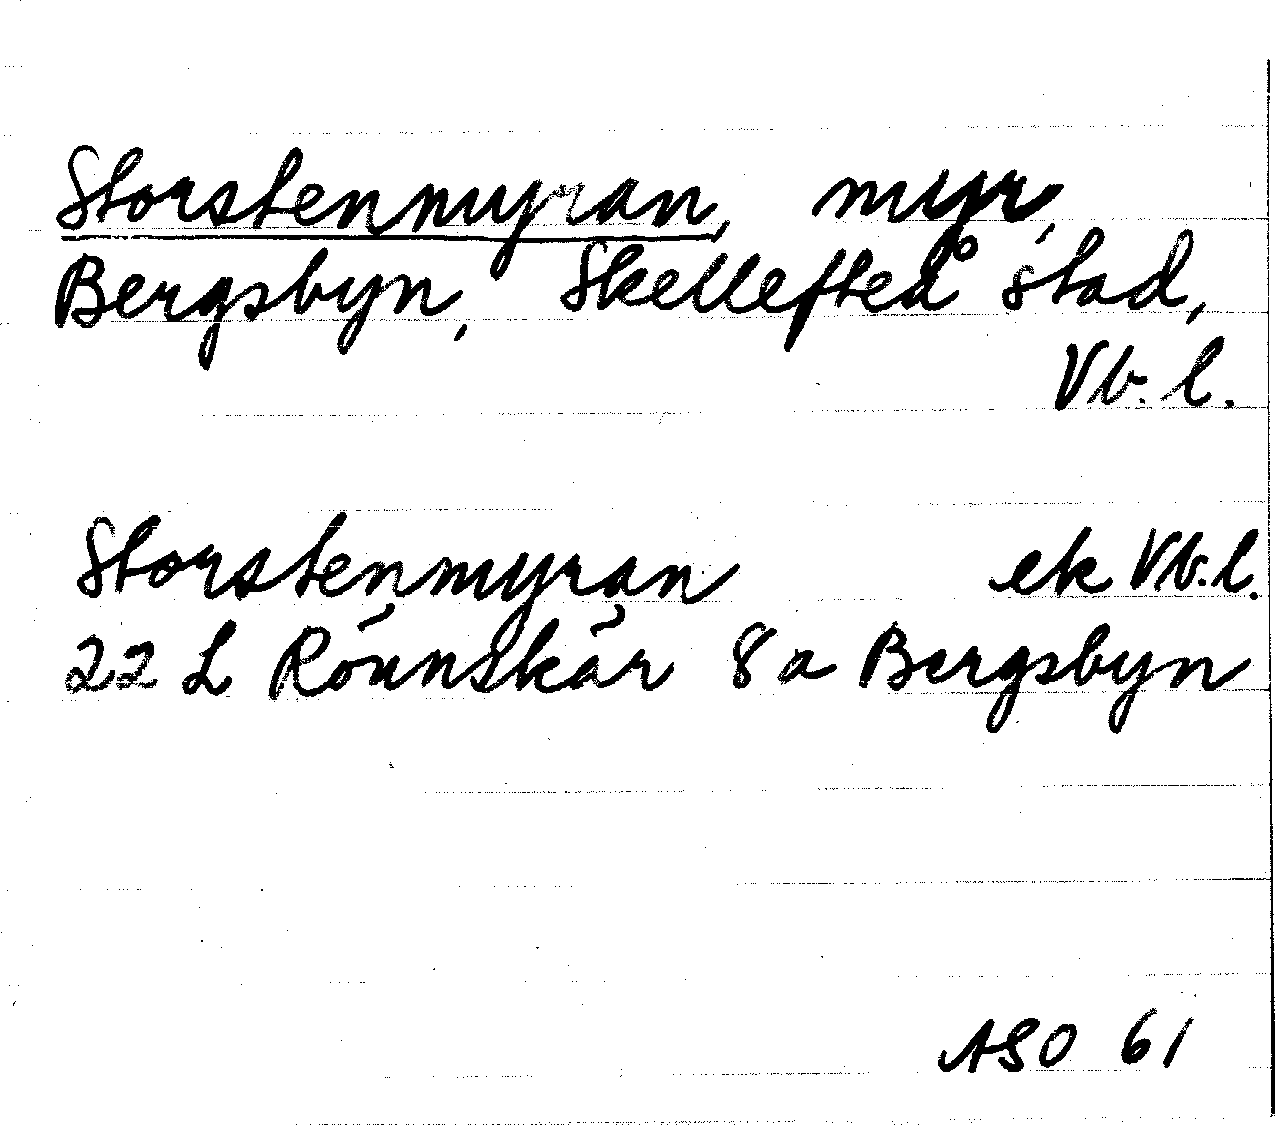 Storstenmyran, myr,
Bergsbyn, Skellefteå stad,
Vb. l.
Storstenmyran ek Vb. l.
22 L Rönnskär 8 a Bergsbyn
ASO 61